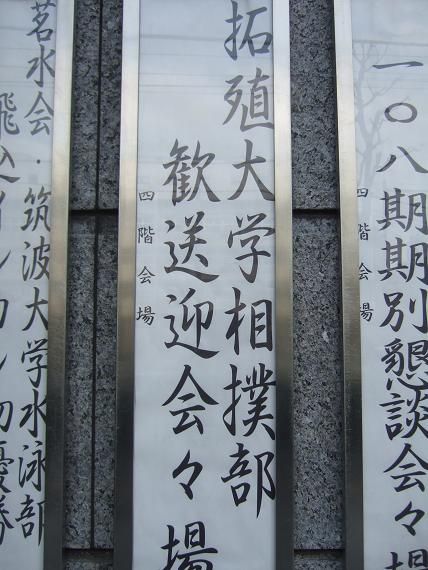 一〇八期期別懇談会々場
四階会場
拓殖大学相撲部
歓送迎会々場
四階会場
茗水会・筑波大学水泳部
飛込
優勝